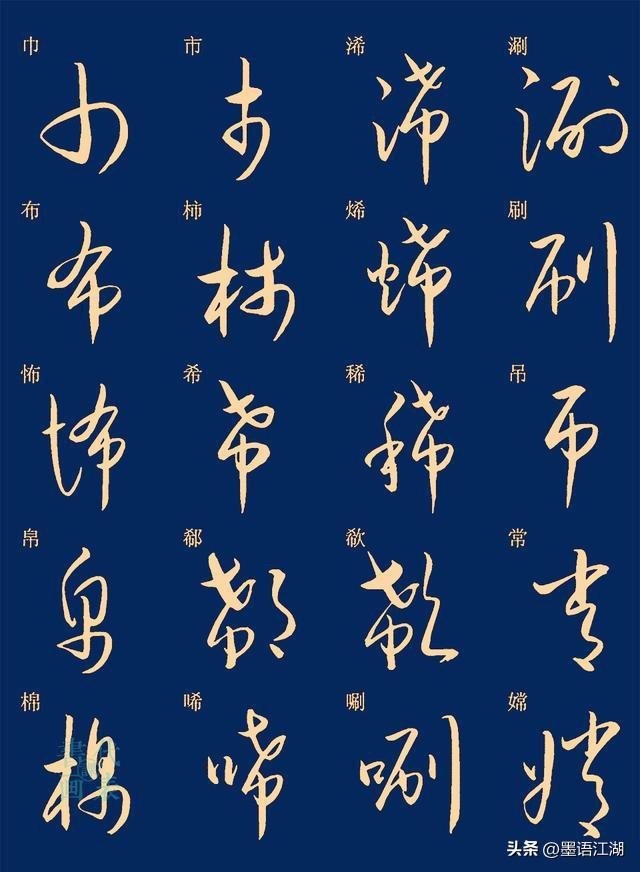 巾 市 浠 涮
布 柿 烯 刷
怖 希 稀 吊
帛 郗 欷 常
棉 唏 唰 嫦
头条 @墨语江湖